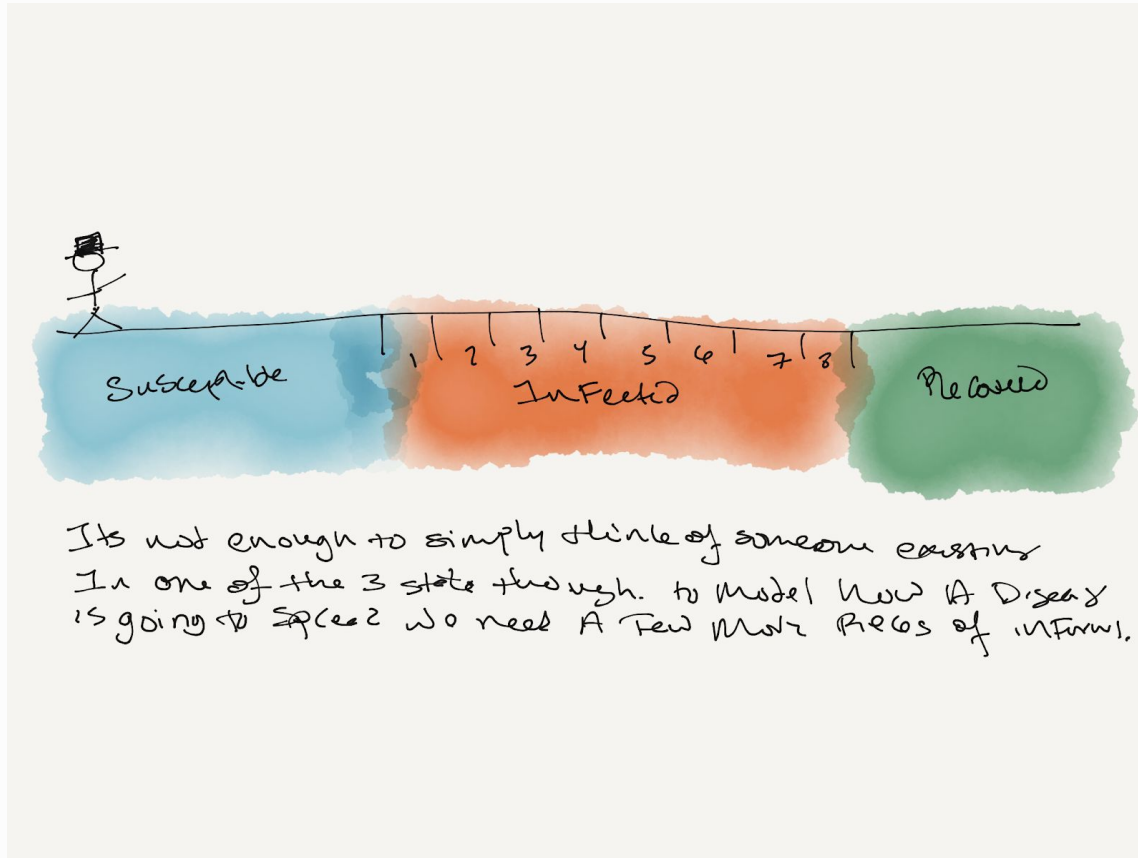 1 2 3 4 5 6 7 8
Susceptible Infected Recovered
Its not enough to simply think of someone existing
In one of the 3 state though. to model how A Diseas
is going to Spread we need A Few more Pieces of inform.